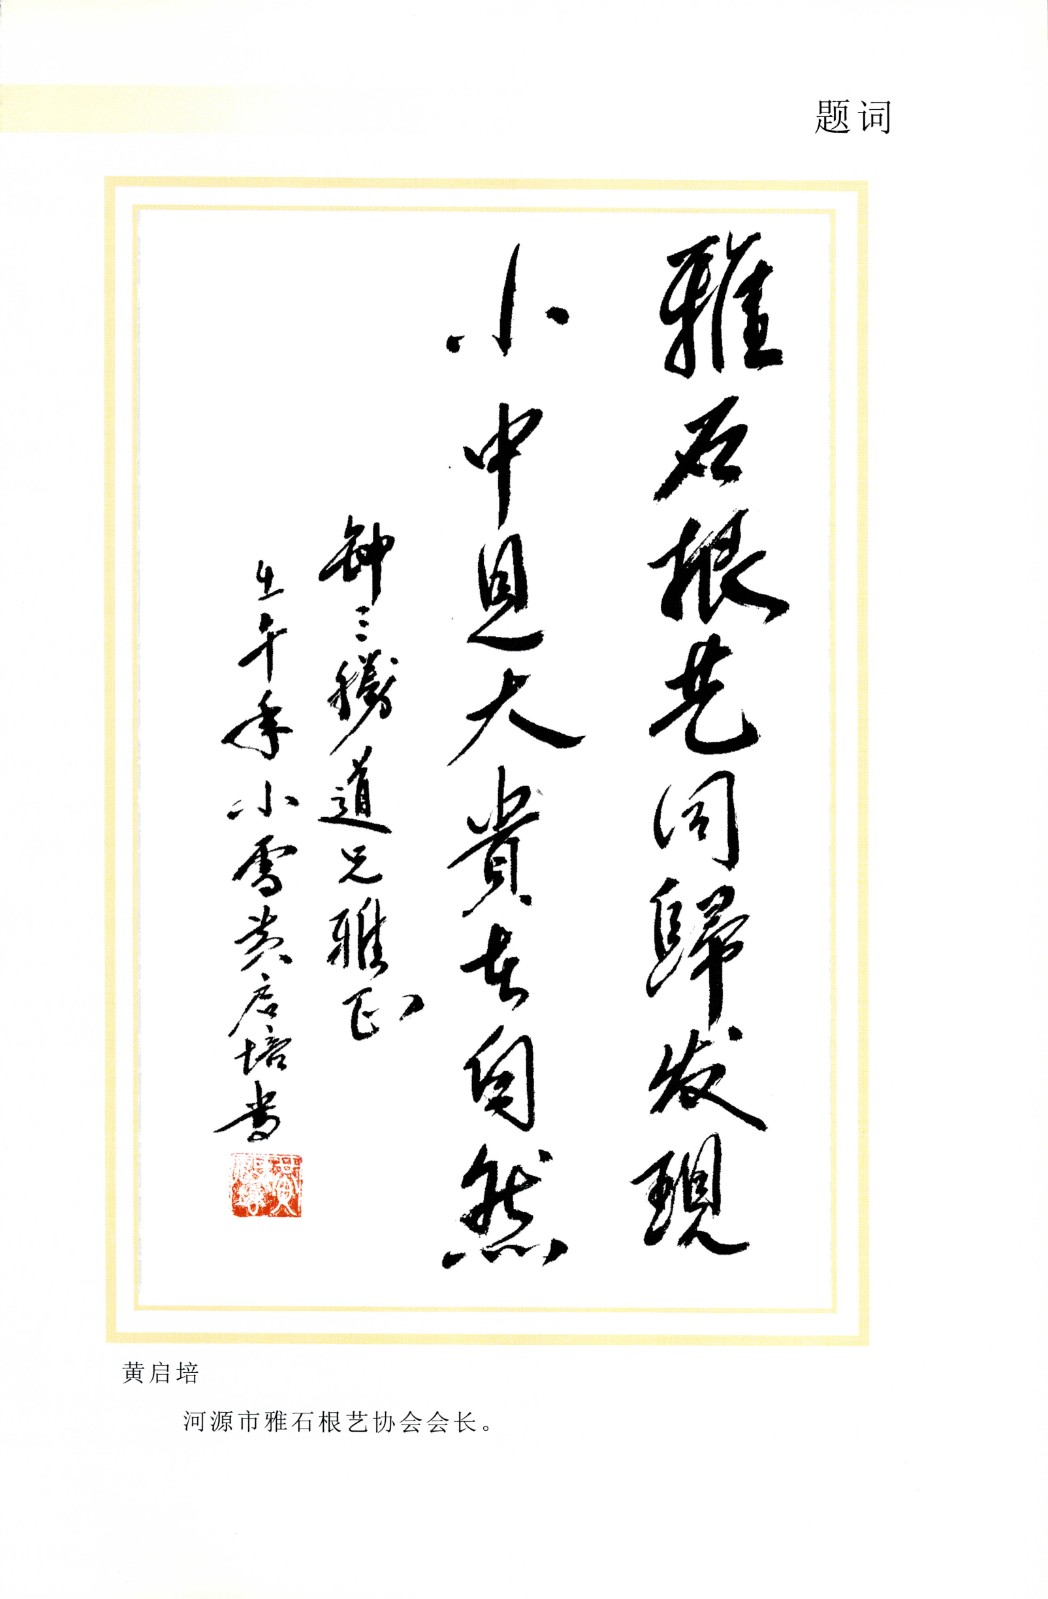 题词
雅石根艺同歸发現
小中見大貴在自然
钟三勝道兄雅正
壬午年小雪黄启培書
黄启培
河源市雅石根艺协会会长。